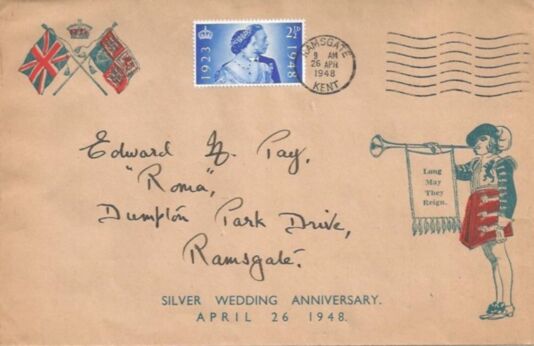 1923
2½D
1948
RAMSGATE
9 AM
26 APR
1948
KENT
Edward H. Pay,
"Roma",
Dumpton Park Drive,
Ramsgate.
Long
May
They
Reign.
SILVER WEDDING ANNIVERSARY.
APRIL 26 1948.